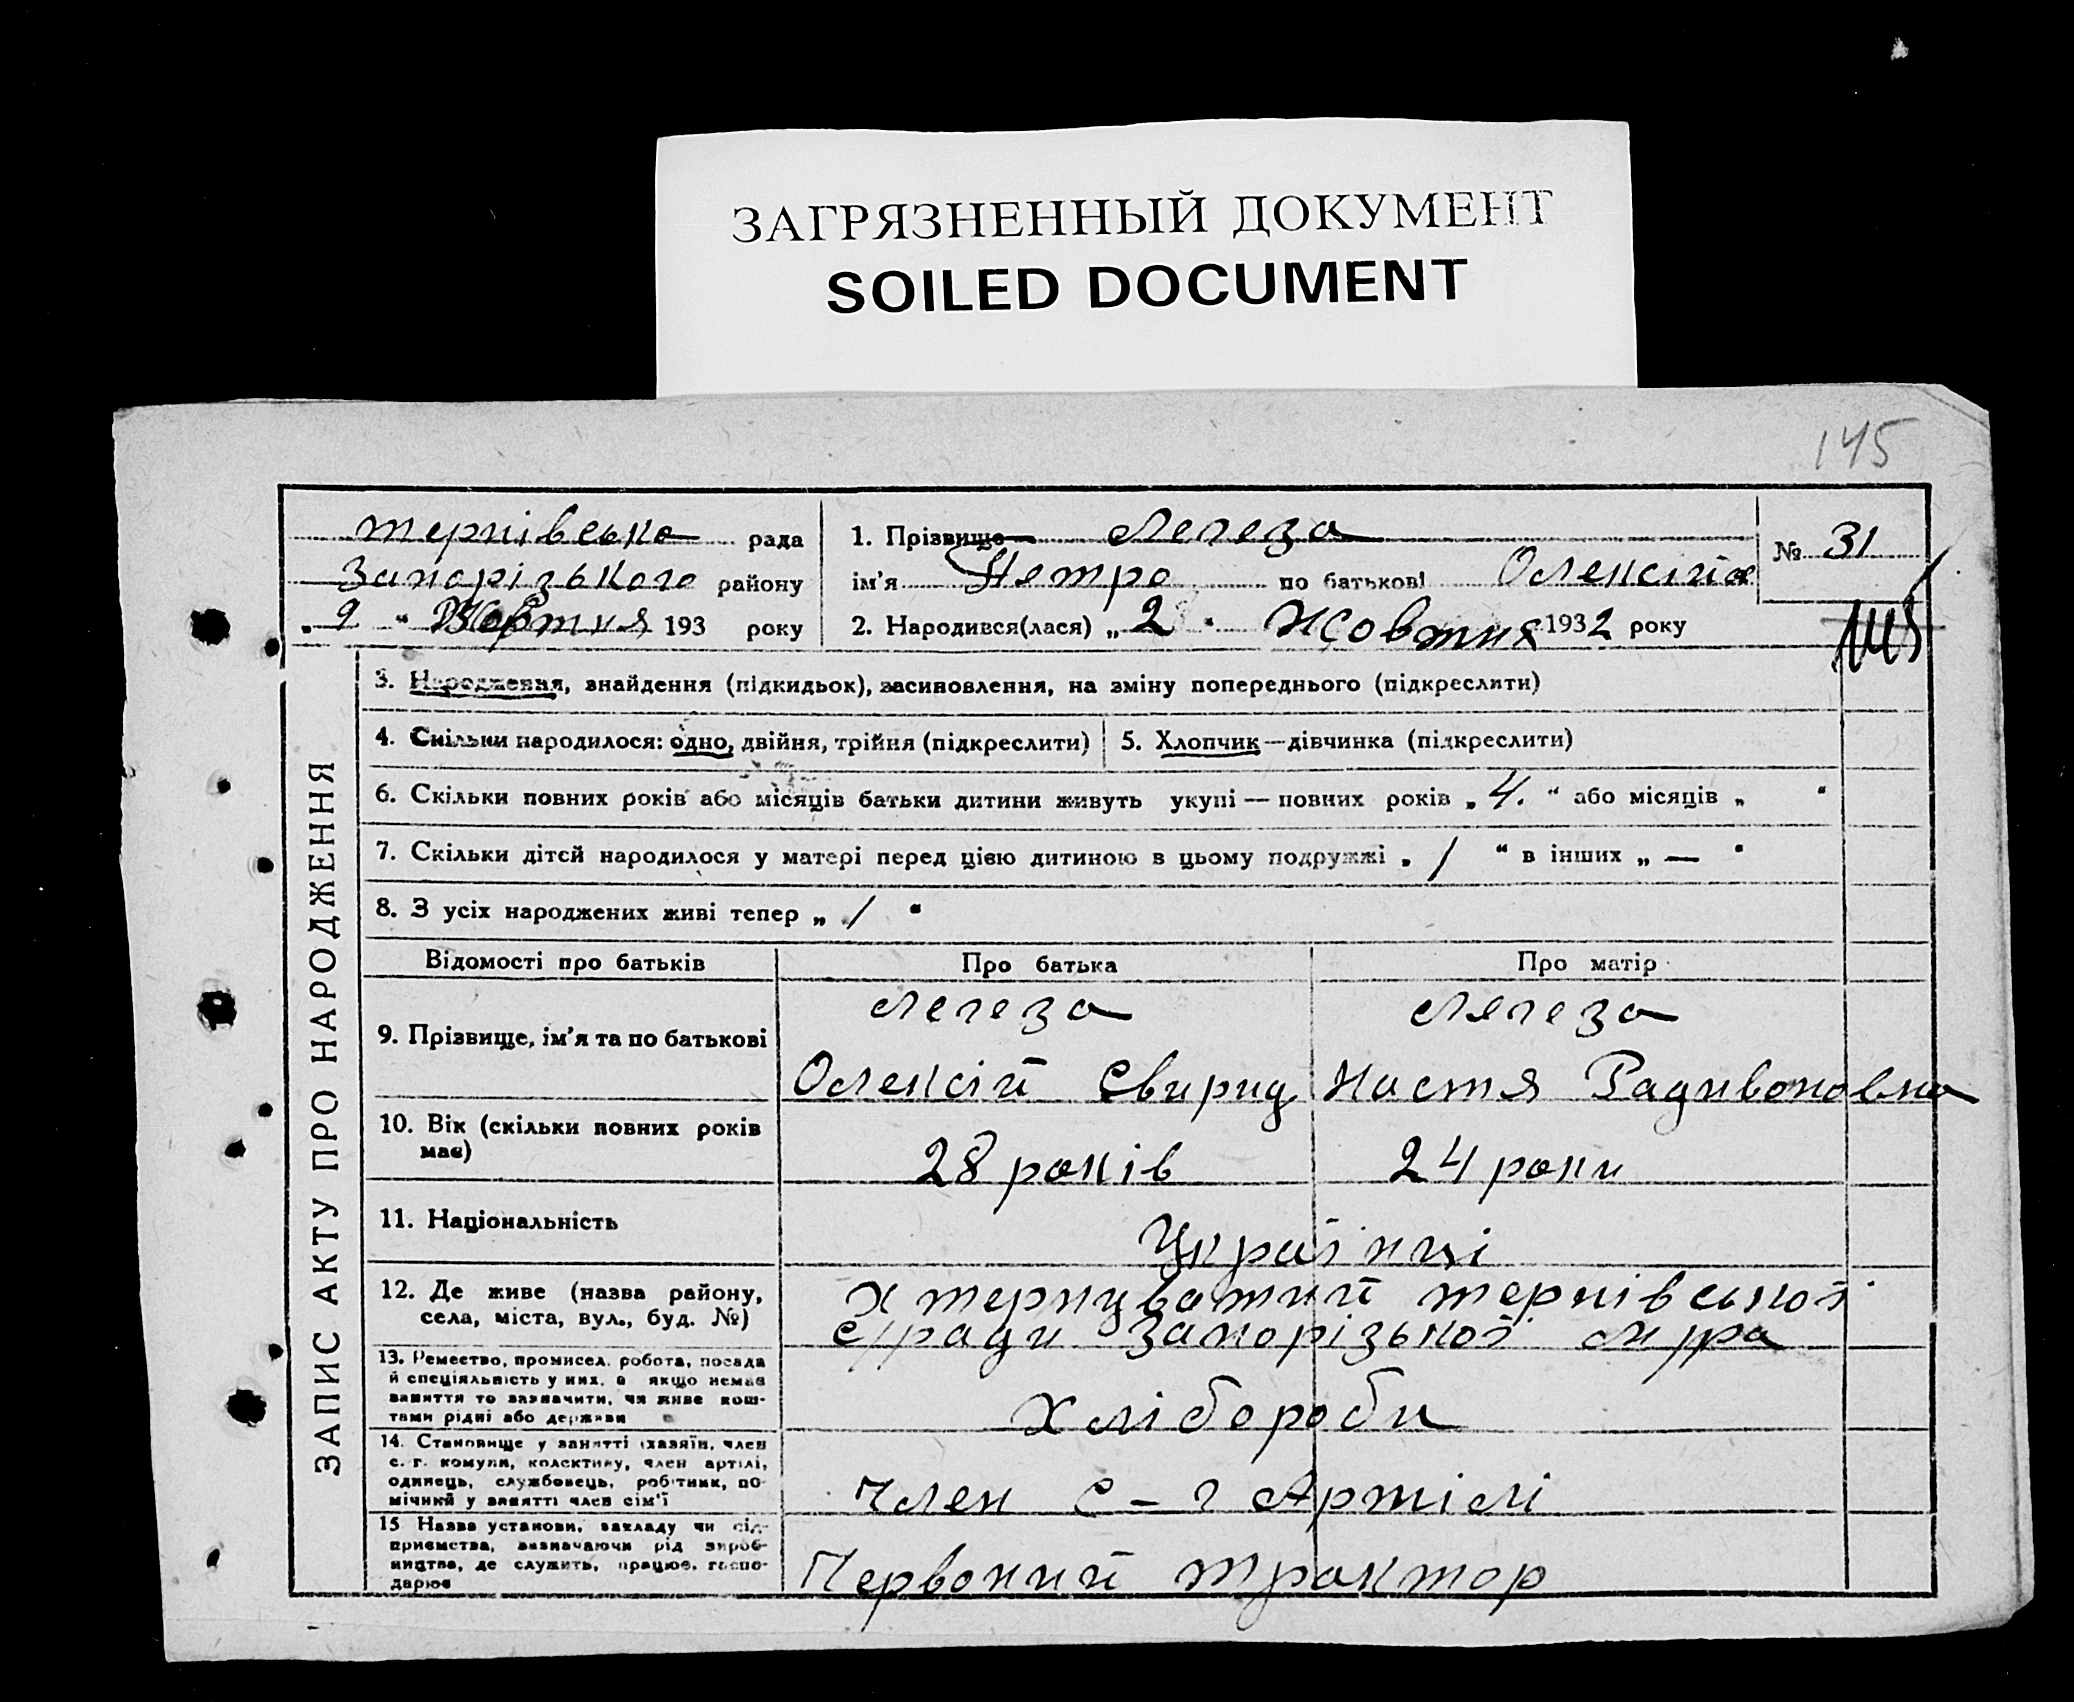 ЗАГРЯЗНЕННЫЙ ДОКУМЕНТ
SOILED DOCUMENT
145
тернівська рада
Запорізького району
„ 9 “ Жовтня 193 року
1. Прізвище Легеза
ім’я Петро по батькові Олексійов
2. Народився(лася) „ 2 “ Жовтня 1932 року
№ 31
145
ЗАПИС АКТУ ПРО НАРОДЖЕННЯ
3. Народження, знайдення (підкидьок), засиновлення, на зміну попереднього (підкреслити)
4. Скільки народилося: одно, двійня, трійня (підкреслити)
5. Хлопчик—дівчинка (підкреслити)
6. Скільки повних років або місяців батьки дитини живуть укупі — повних років „ 4. “ або місяців „ “
7. Скільки дітей народилося у матері перед цією дитиною в цьому подружжі „ 1 “ в інших „ — “
8. З усіх народжених живі тепер „ 1 “
Відомості про батьків
Про батька
Про матір
9. Прізвище, ім’я та по батькові
Легеза
Олексій Свирид
Легеза
Настя Радивоновна
10. Вік (скільки повних років
має)
28 років
24 роки
11. Національність
Українці
12. Де живе (назва району,
села, міста, вул., буд. №)
х тернуватий тернівської
с/ради Запорізької м/ра
13. Ремество, промисел, робота, посада
й спеціяльність у них, а якщо немає
заняття то зазначити, чи живе кош-
тами рідні або держави
Хлібороби
14. Становище у занятті (хазяїн, член
с. г. комуни, колективу, член артілі,
одинець, службовець, робітник, по-
мічний у занятті член сім’ї
Член с-г Артілі
15 Назва установи, закладу чи під-
приємства, визначаючи рід вироб-
ництва, де служить, працює, госпо-
дарює
Червоний трактор